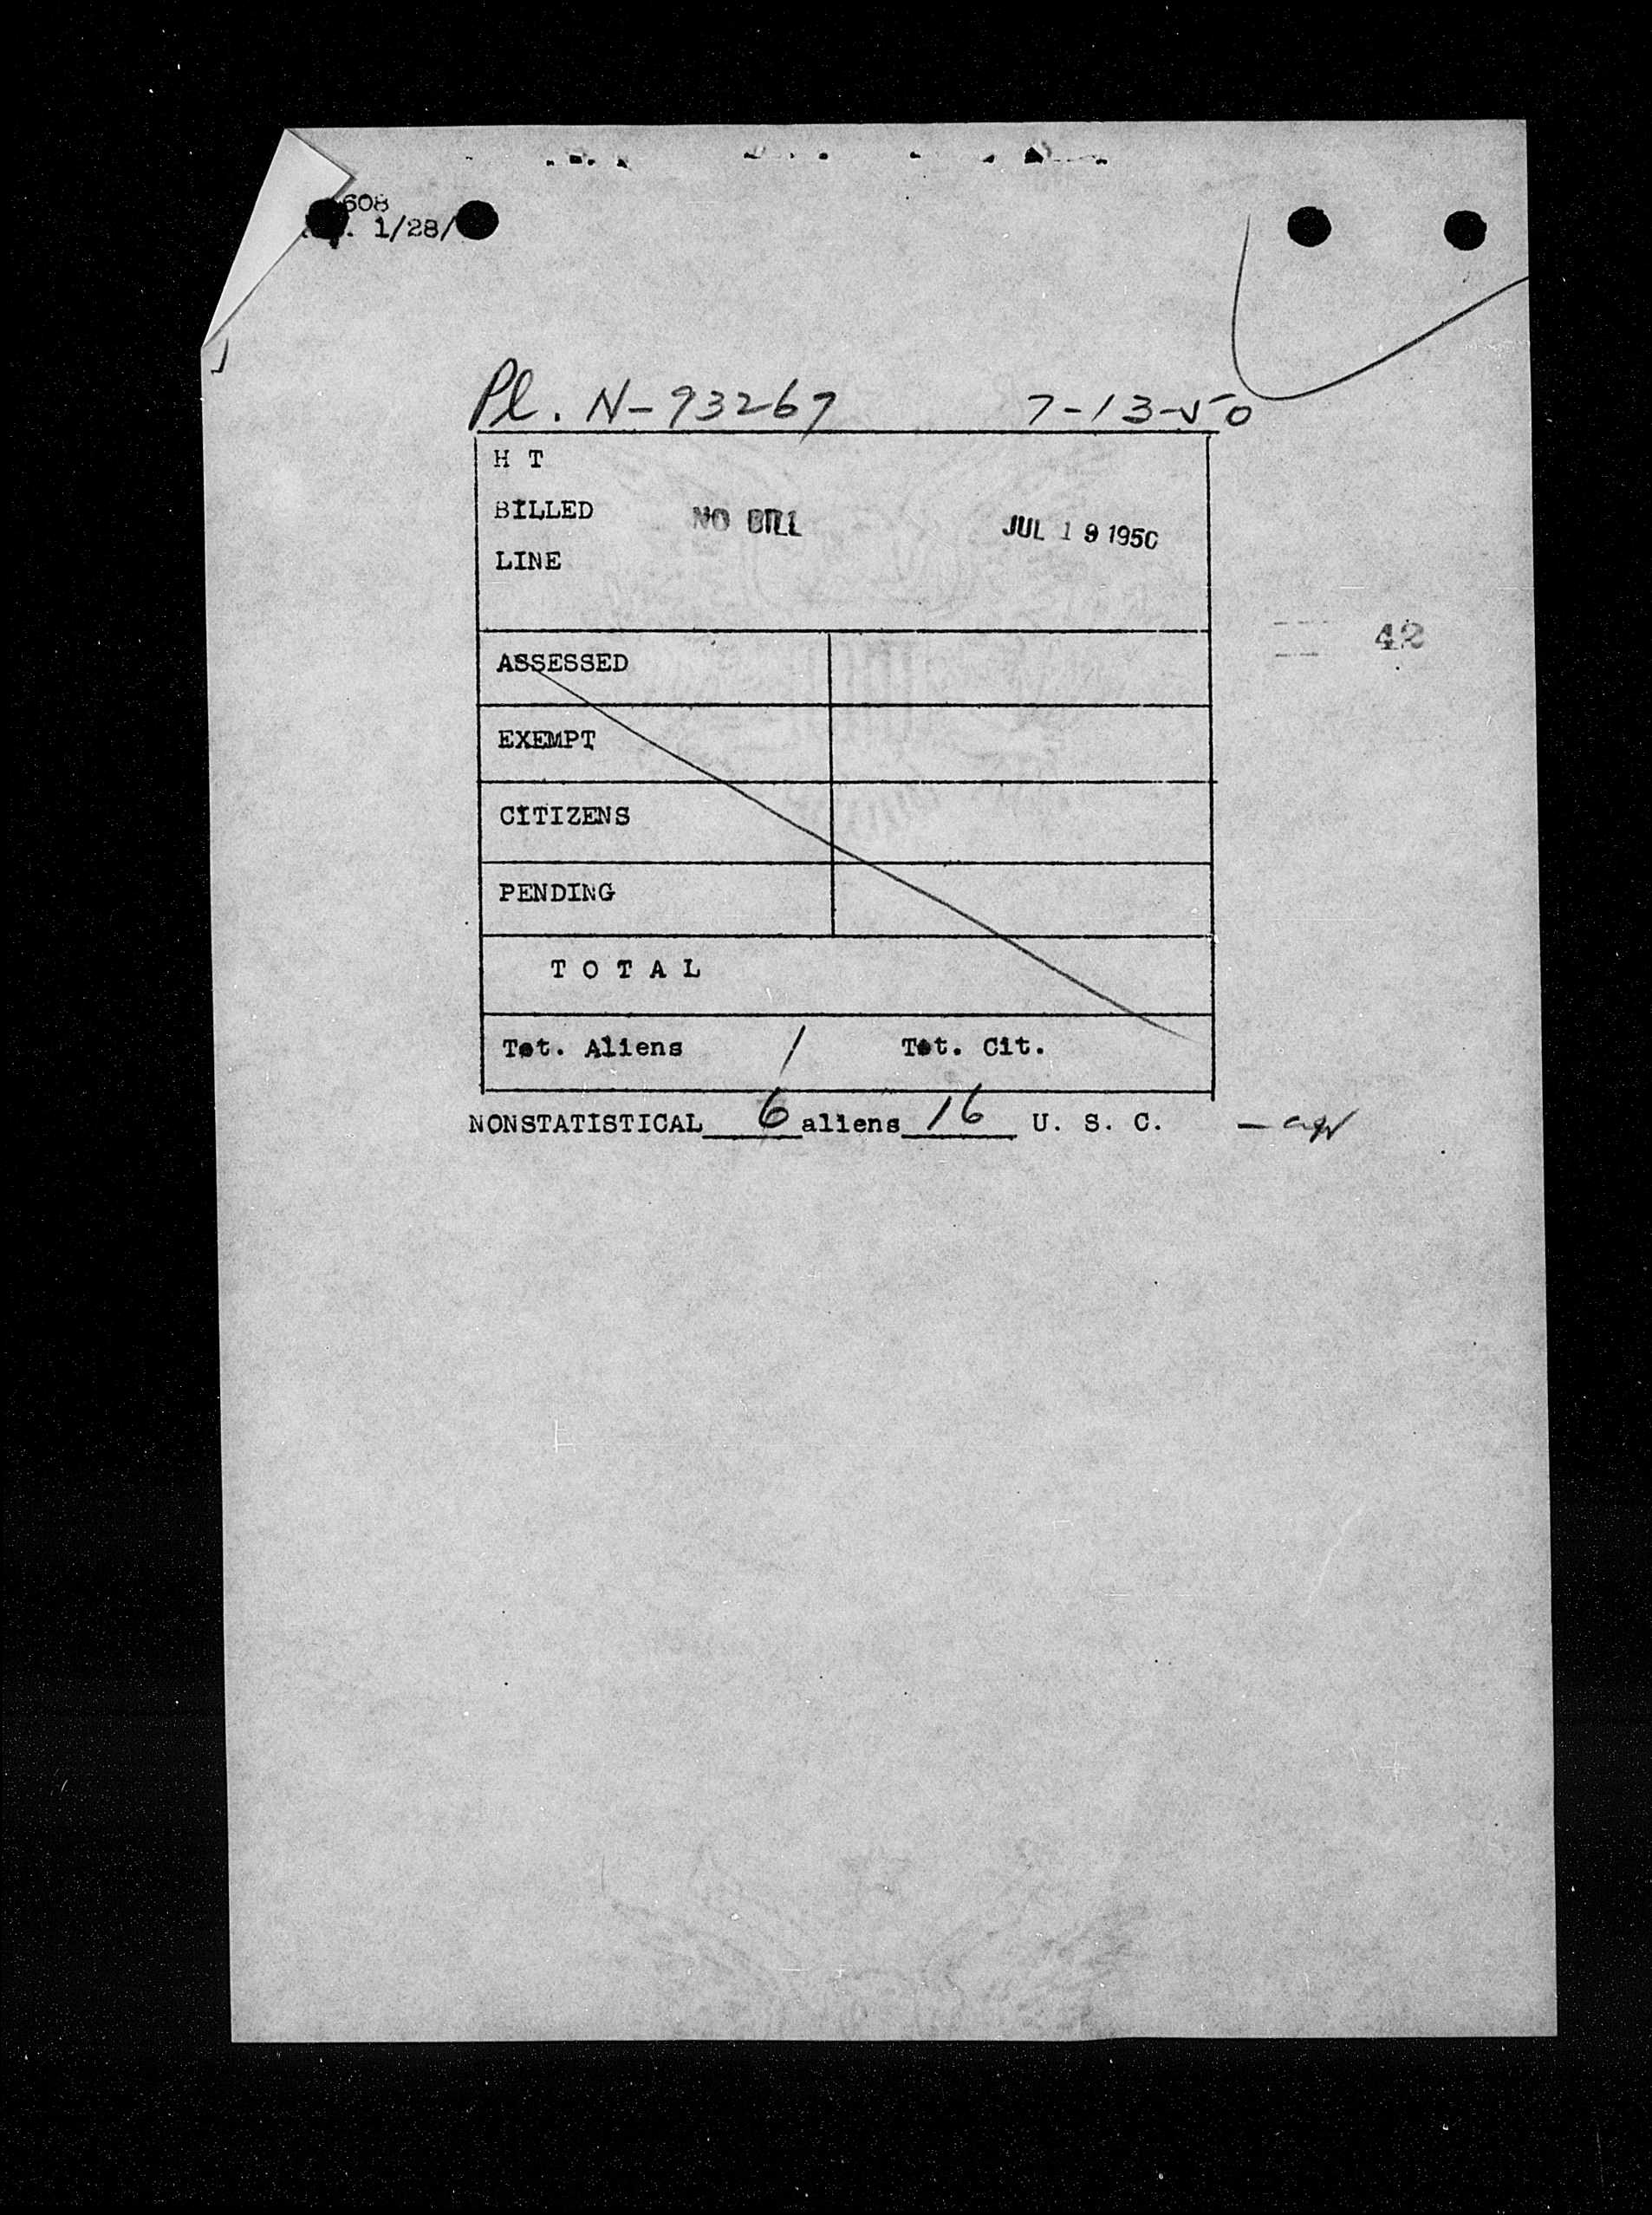 608
1/28/
Pl. N-93267 7-13-50
H T
BILLED NO BILL JUL 19 1950
LINE
42
ASSESSED
EXEMPT
CITIZENS
PENDING
T O T A L
Tot. Aliens / Tot. Cit.
NONSTATISTICAL 6 aliens 16 U. S. C.